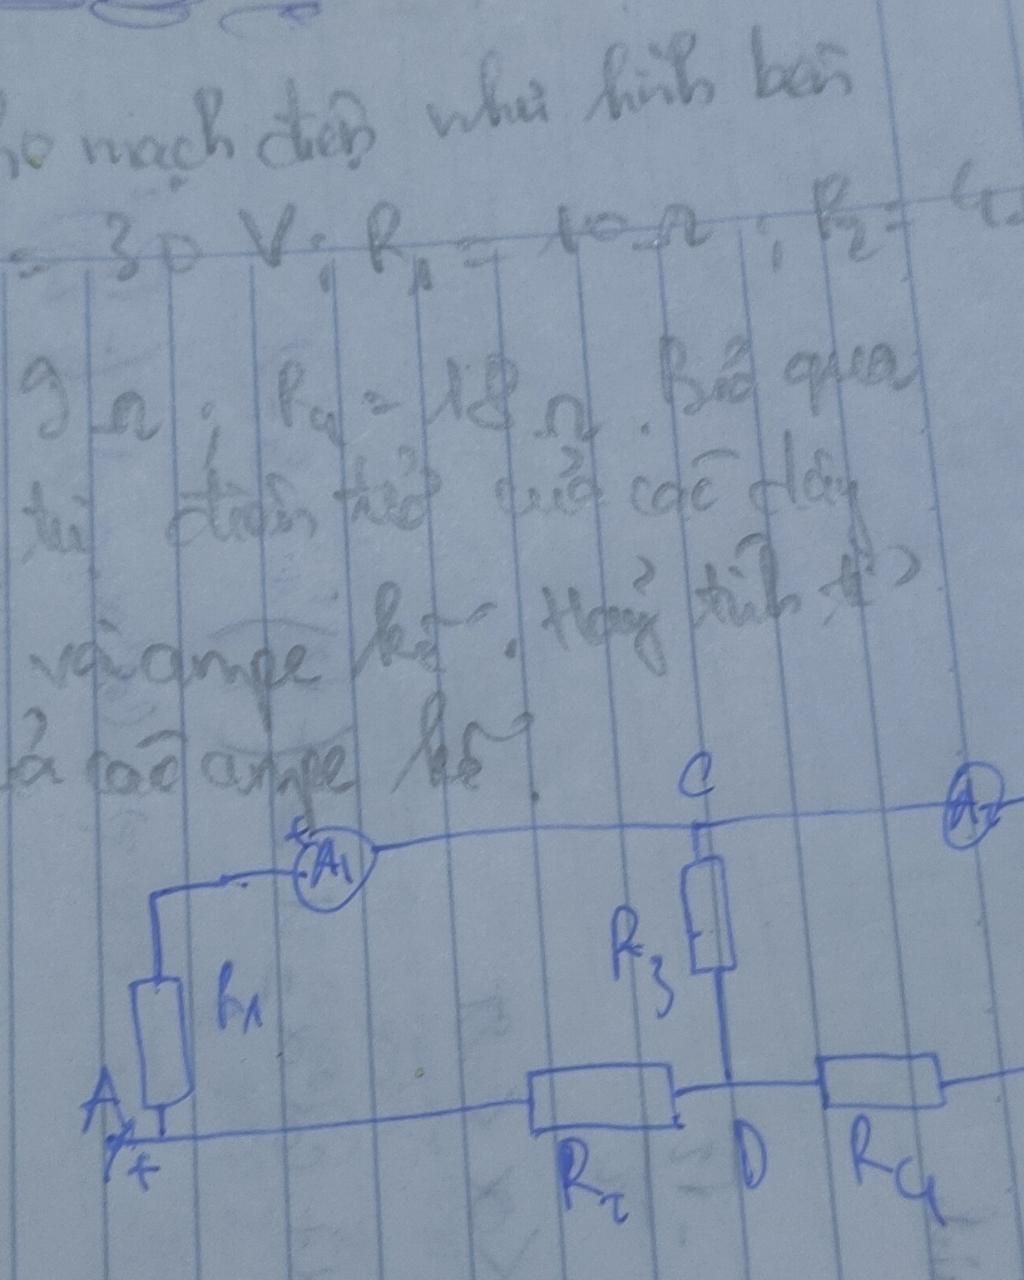 mạch điện như hình bên
= 30 V; R₁ = 10 Ω; R₂ = 4
9 Ω; R₄ = 18 Ω. Bỏ qua
điện trở của các dây
và ampe kế. Hãy tính
các ampe kế
C
A₂
+
A₁
R₃
R₁
A
+
R₂
D
R₄